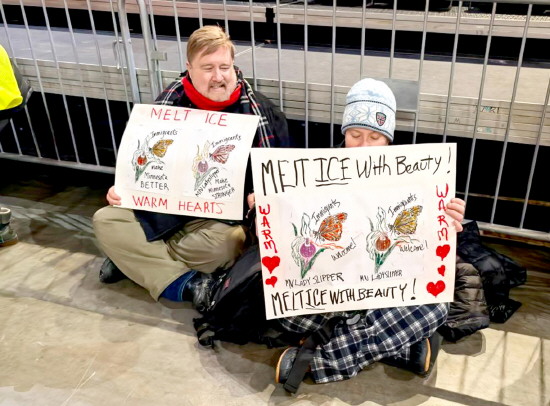 MELT ICE
Immigrants
make
Minnesota
BETTER
Immigrants
Make
Minnesota
STRONGER
WARM HEARTS
MELT ICE With Beauty!
WARM
Immigrants
Welcome!
Immigrants
Welcome!
WARM
MN LADY SLIPPER
MN LADYSLIPPER
MELT ICE WITH BEAUTY!